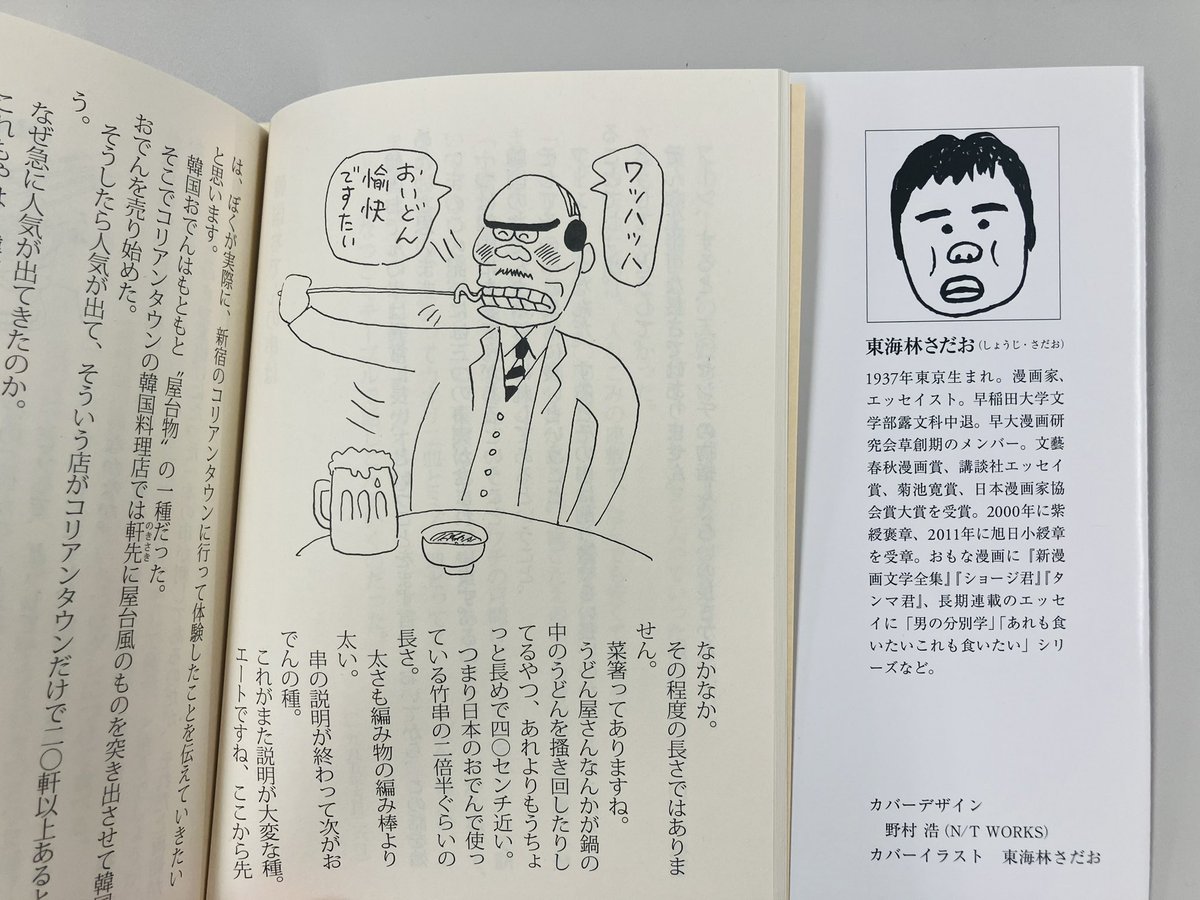 ワッハッハ
おいどん
愉快
ですたい
なかなか。
その程度の長さではありま
せん。
菜箸ってありますね。
うどん屋さんなんかが鍋の
中のうどんを掻き回したりし
てるやつ、あれよりもうちょ
っと長めで四〇センチ近い。
つまり日本のおでんで使っ
ている竹串の二倍半ぐらいの
長さ。
太さも編み物の編み棒より
太い。
串の説明が終わって次がお
でんの種。
これがまた説明が大変な種。
エートですね、ここから先
は、ぼくが実際に、新宿のコリアンタウンに行って体験したことを伝えていきたい
と思います。
韓国おでんはもともと〝屋台物〟の一種だった。
そこでコリアンタウンの韓国料理店では軒先に屋台風のものを突き出させて韓国
のきさき
おでんを売り始めた。
そうしたら人気が出て、そういう店がコリアンタウンだけで二〇軒以上あると
う。
なぜ急に人気が出てきたのか。
これもやは
東海林さだお(しょうじ・さだお)
1937年東京生まれ。漫画家、
エッセイスト。早稲田大学文
学部露文科中退。早大漫画研
究会草創期のメンバー。文藝
春秋漫画賞、講談社エッセイ
賞、菊池寛賞、日本漫画家協
会賞大賞を受賞。2000年に紫
綬褒章、2011年に旭日小綬章
を受章。おもな漫画に『新漫
画文学全集』『ショージ君』『タ
ンマ君』、長期連載のエッセ
イに「男の分別学」「あれも食
いたいこれも食いたい」シリ
ーズなど。
カバーデザイン
野村 浩(N/T WORKS)
カバーイラスト 東海林さだお